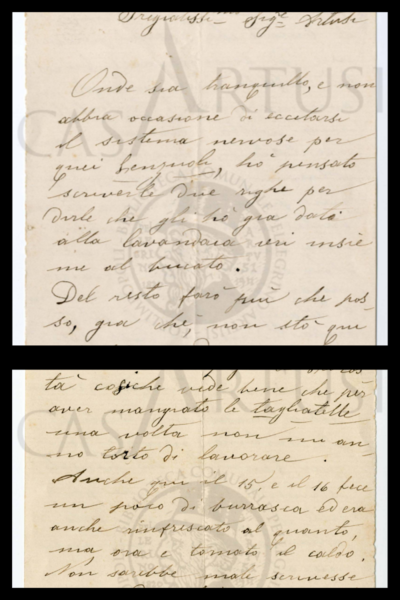 Pregiatiss. Sig.r Artusi
Onde sia tranquillo, e non
abbia occasione di eccitarsi
il sistema nervoso per
quei lenzuoli, hò pensato
scriverle due righe per
dirle che gli hò gia dati
alla lavandaia ieri insie
me al bucato.
Del resto farò più che pos-
so, gia che, non stò qui
tà cosiche vede bene che per
aver mangiato le tagliatelle
una volta non mi an-
no torto di lavorare.
Anche qui il 15, e il 16 fece
un poco di burrasca ed era
anche rinfrescato al quanto,
ma, ora è tornato il caldo.
Non sarebbe mali scrivesse
CASA ARTUSI